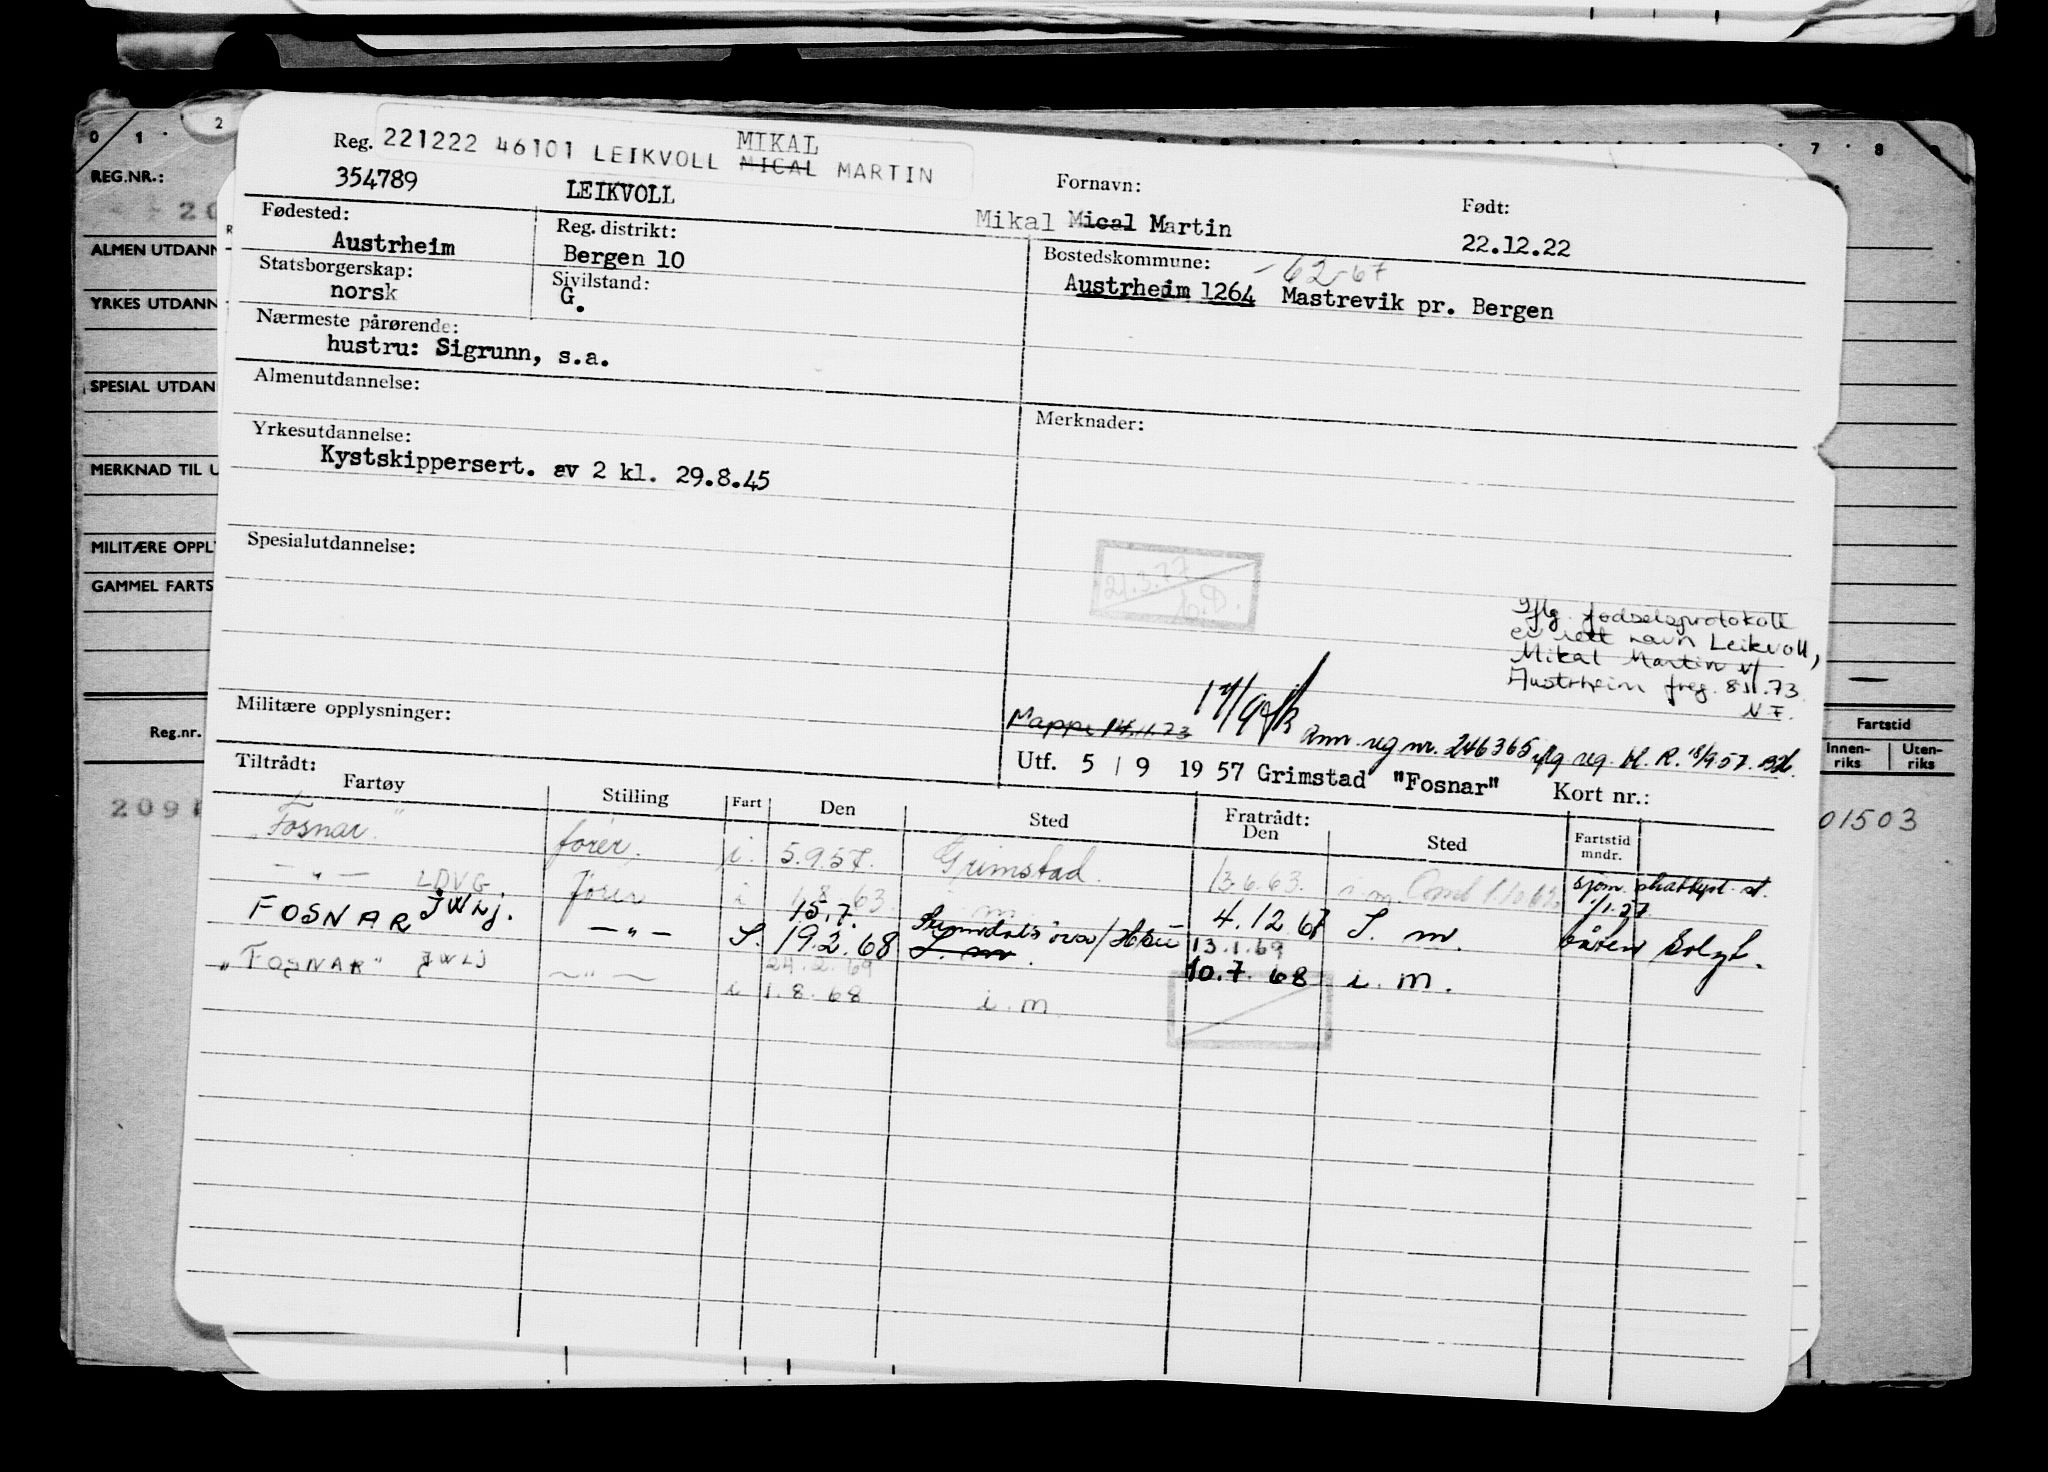 0 1 2 7 8
REG.NR.:
ALMEN UTDANN
YRKES UTDANN
SPESIAL UTDAN
MERKNAD TIL U
MILITÆRE OPPL
GAMMEL FARTS
Reg.nr.
Fartstid
Innen-riks Uten-riks
2091
01503
MIKAL
Reg. 221222 46101 LEIKVOLL MICAL MARTIN
354789 LEIKVOLL
Fornavn:
Mikal Mical Martin
Født:
22.12.22
Fødested:
Austrheim
Reg. distrikt:
Bergen 10
Bostedskommune: - 62-67
Austrheim 1264 Mastrevik pr. Bergen
Statsborgerskap:
norsk
Sivilstand:
G.
Nærmeste pårørende:
hustru: Sigrunn, s.a.
Almenutdannelse:
Merknader:
Yrkesutdannelse:
Kystskippersert. av 2 kl. 29.8.45
Spesialutdannelse:
21.3.77
Iflg. fødselsprotokoll
er rett navn Leikvoll,
Mikal Martin v/
Austrheim freg. 8.11.73
N F.
Militære opplysninger:
Mappe 14.11.73
Ann. reg nr. 246365 iflg reg. H. R. 18/9.57.
Utf. 5 / 9 1957 Grimstad "Fosnar" Kort nr.:
Tiltrådt:
Fartøy Stilling Fart Den Sted
Fratrådt:
Den Sted Fartstid mndr.
"Fosnar" fører, i. 5.9.57. Grimstad. 13.6.63. i m
- " - LDVG. fører i 1.8.63 m
FOSNAR JWLJ. - " - 15.7. 4.12.67 S. m.
S. 19.2.68 S. m. 13.1.69
"FOSNAR" JWLJ - " - 24.2.69 10.7.68 i. m.
i 1.8.68 i. m.
sjøm.
1/1.27
båten solgt.